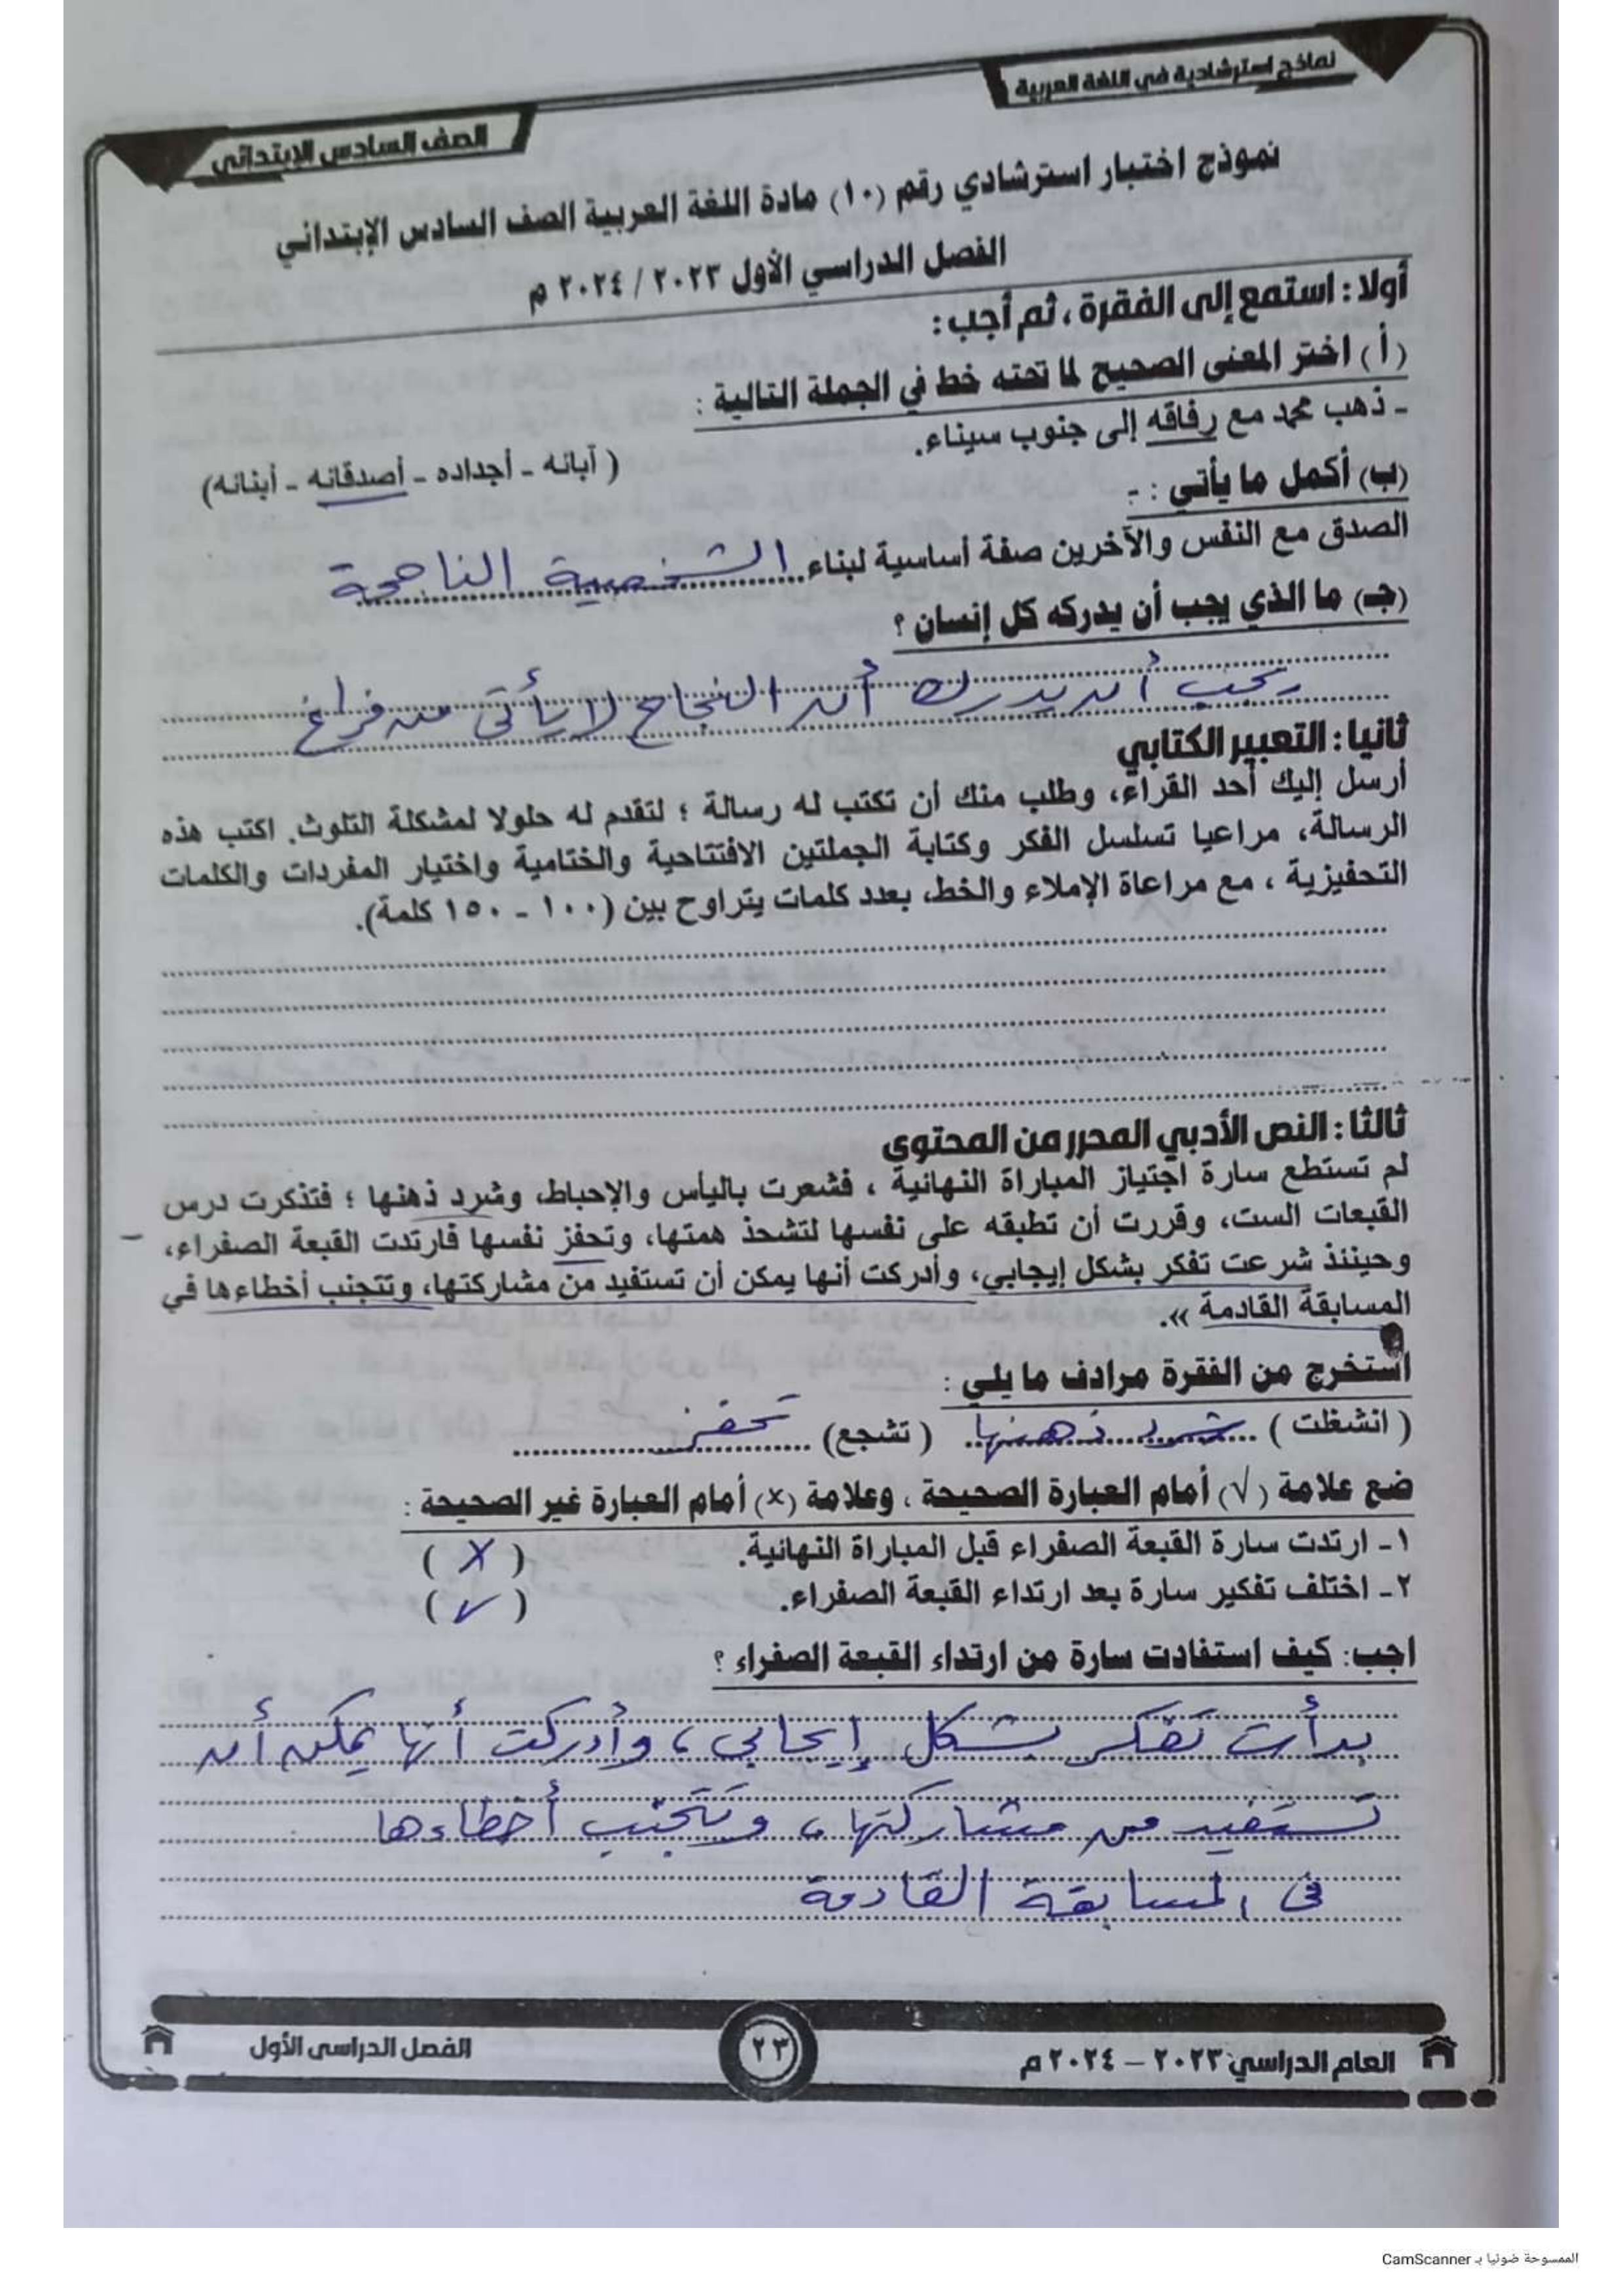 نماذج استرشادية في اللغة العربية
الصف السادس الإبتدائي
نموذج اختبار استرشادي رقم (١٠) مادة اللغة العربية الصف السادس الإبتدائي
الفصل الدراسي الأول ٢٠٢٣ / ٢٠٢٤ م
أولا : استمع إلى الفقرة ، ثم أجب :
(أ) اختر المعنى الصحيح لما تحته خط في الجملة التالية :
- ذهب محمد مع رفاقه إلى جنوب سيناء.
( آبائه - أجداده - أصدقائه - أبنائه)
(ب) أكمل ما يأتي : -
الصدق مع النفس والآخرين صفة أساسية لبناء الشخصية الناجحة
(جـ) ما الذي يجب أن يدركه كل إنسان ؟
يجب أن يدرك أن النجاح لا يأتى من فراغ
ثانيا : التعبير الكتابي
أرسل إليك أحد القراء، وطلب منك أن تكتب له رسالة ؛ لتقدم له حلولا لمشكلة التلوث. اكتب هذه
الرسالة، مراعيا تسلسل الفكر وكتابة الجملتين الافتتاحية والختامية واختيار المفردات والكلمات
التحفيزية ، مع مراعاة الإملاء والخط، بعدد كلمات يتراوح بين (١٠٠ - ١٥٠ كلمة).
ثالثا : النص الأدبي المحرر من المحتوى
لم تستطع سارة اجتياز المباراة النهائية ، فشعرت باليأس والإحباط، وشرد ذهنها ؛ فتذكرت درس
القبعات الست، وقررت أن تطبقه على نفسها لتشحذ همتها، وتحفز نفسها فارتدت القبعة الصفراء،
وحينئذ شرعت تفكر بشكل إيجابي، وأدركت أنها يمكن أن تستفيد من مشاركتها، وتتجنب أخطاءها في
المسابقة القادمة ».
استخرج من الفقرة مرادف ما يلي :
( انشغلت ) شرد ذهنها ( تشجع) تحفز
ضع علامة (√) أمام العبارة الصحيحة ، وعلامة (×) أمام العبارة غير الصحيحة :
١- ارتدت سارة القبعة الصفراء قبل المباراة النهائية. ( X )
٢- اختلف تفكير سارة بعد ارتداء القبعة الصفراء. ( √ )
اجب: كيف استفادت سارة من ارتداء القبعة الصفراء ؟
بدأت تفكر بشكل إيجابي ، وأدركت أنها يمكن أن
تستفيد من مشاركتها ، وتتجنب أخطاءها
فى المسابقة القادمة
العام الدراسي ٢٠٢٣ – ٢٠٢٤ م
٢٣
الفصل الدراسى الأول
الممسوحة ضوئيا بـ CamScanner